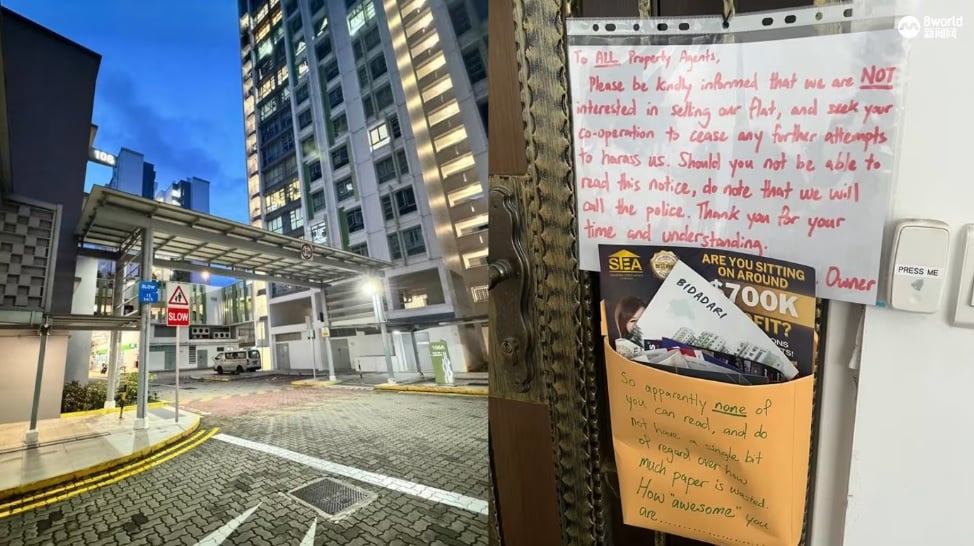 106
SLOW
SLOW
106A
8world
新闻网
To ALL Property Agents,
Please be kindly informed that we are NOT
interested in selling our flat, and seek your
co-operation to cease any further attempts
to harass us. Should you not be able to
read this notice, do note that we will
call the police. Thank you for your
time and understanding.
Owner
PRESS ME
SEA
ARE YOU SITTING
ON AROUND
$700K
FIT?
BIDADARI
So apparently none of
you can read, and do
not have a single bit
of regard over how
much paper is wasted.
How "awesome" you
are..........